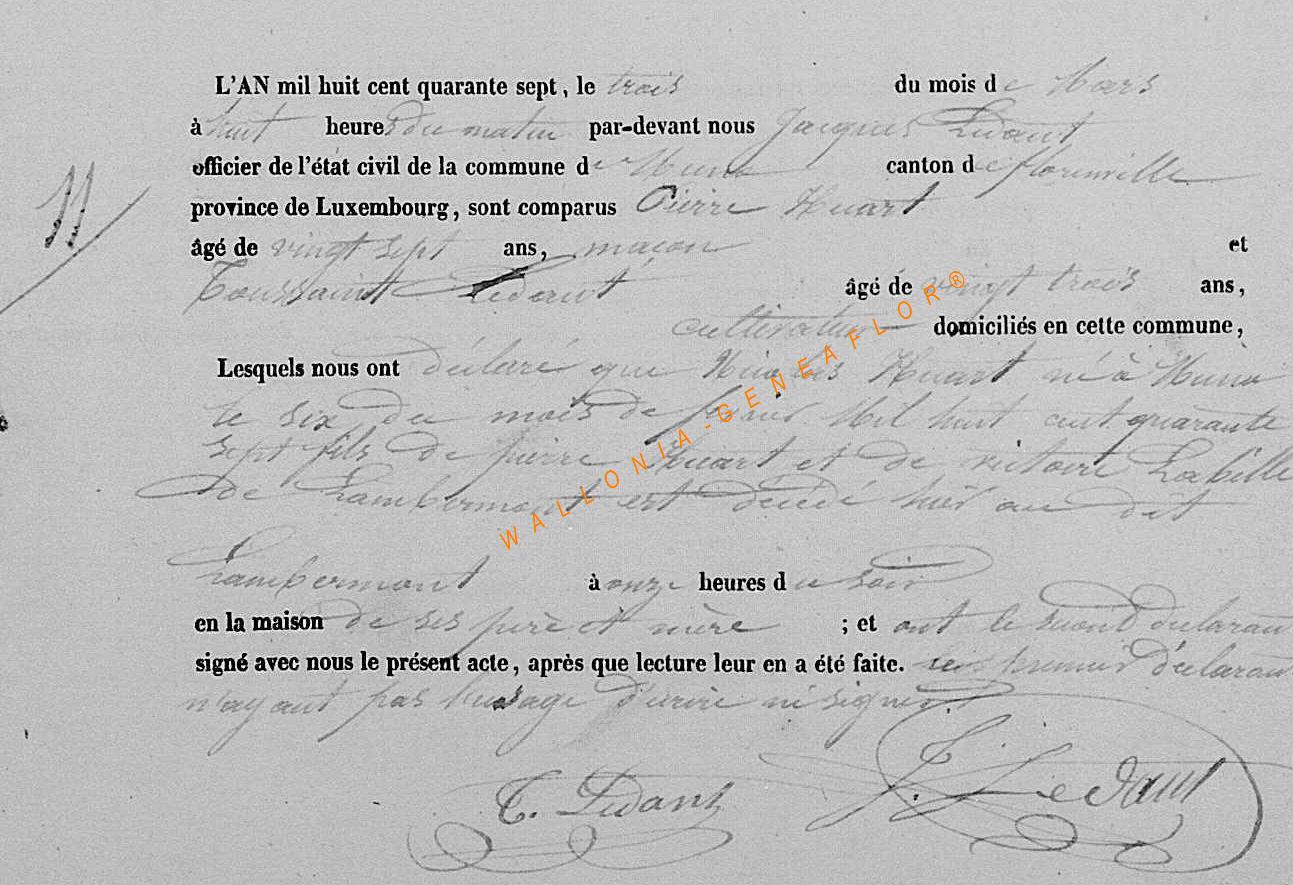 L'AN mil huit cent quarante sept, le trois du mois de Mars
à huit heures du matin par-devant nous Jacques Ledant
officier de l'état civil de la commune de Muno canton de florenville
province de Luxembourg, sont comparus Pierre Huart
11
âgé de vingt sept ans, maçon et
Toussaint Ledant âgé de vingt trois ans,
cultivateur domiciliés en cette commune,
Lesquels nous ont déclaré que Nicolas Huart né à Muno
le six du mois de fevrier Mil huit cent quarante
sept fils de pierre Huart et de victoire Labille
de Lambermont est décédé hier au dit
Lambermont à onze heures du soir
en la maison de ses père et mère ; et ont le second déclarant
signé avec nous le présent acte, après que lecture leur en a été faite. le premier déclarant
n'ayant pas l'usage d'écrire ni signer
T. Ledant J. Ledant
WALLONIA-GENEAFLOR®